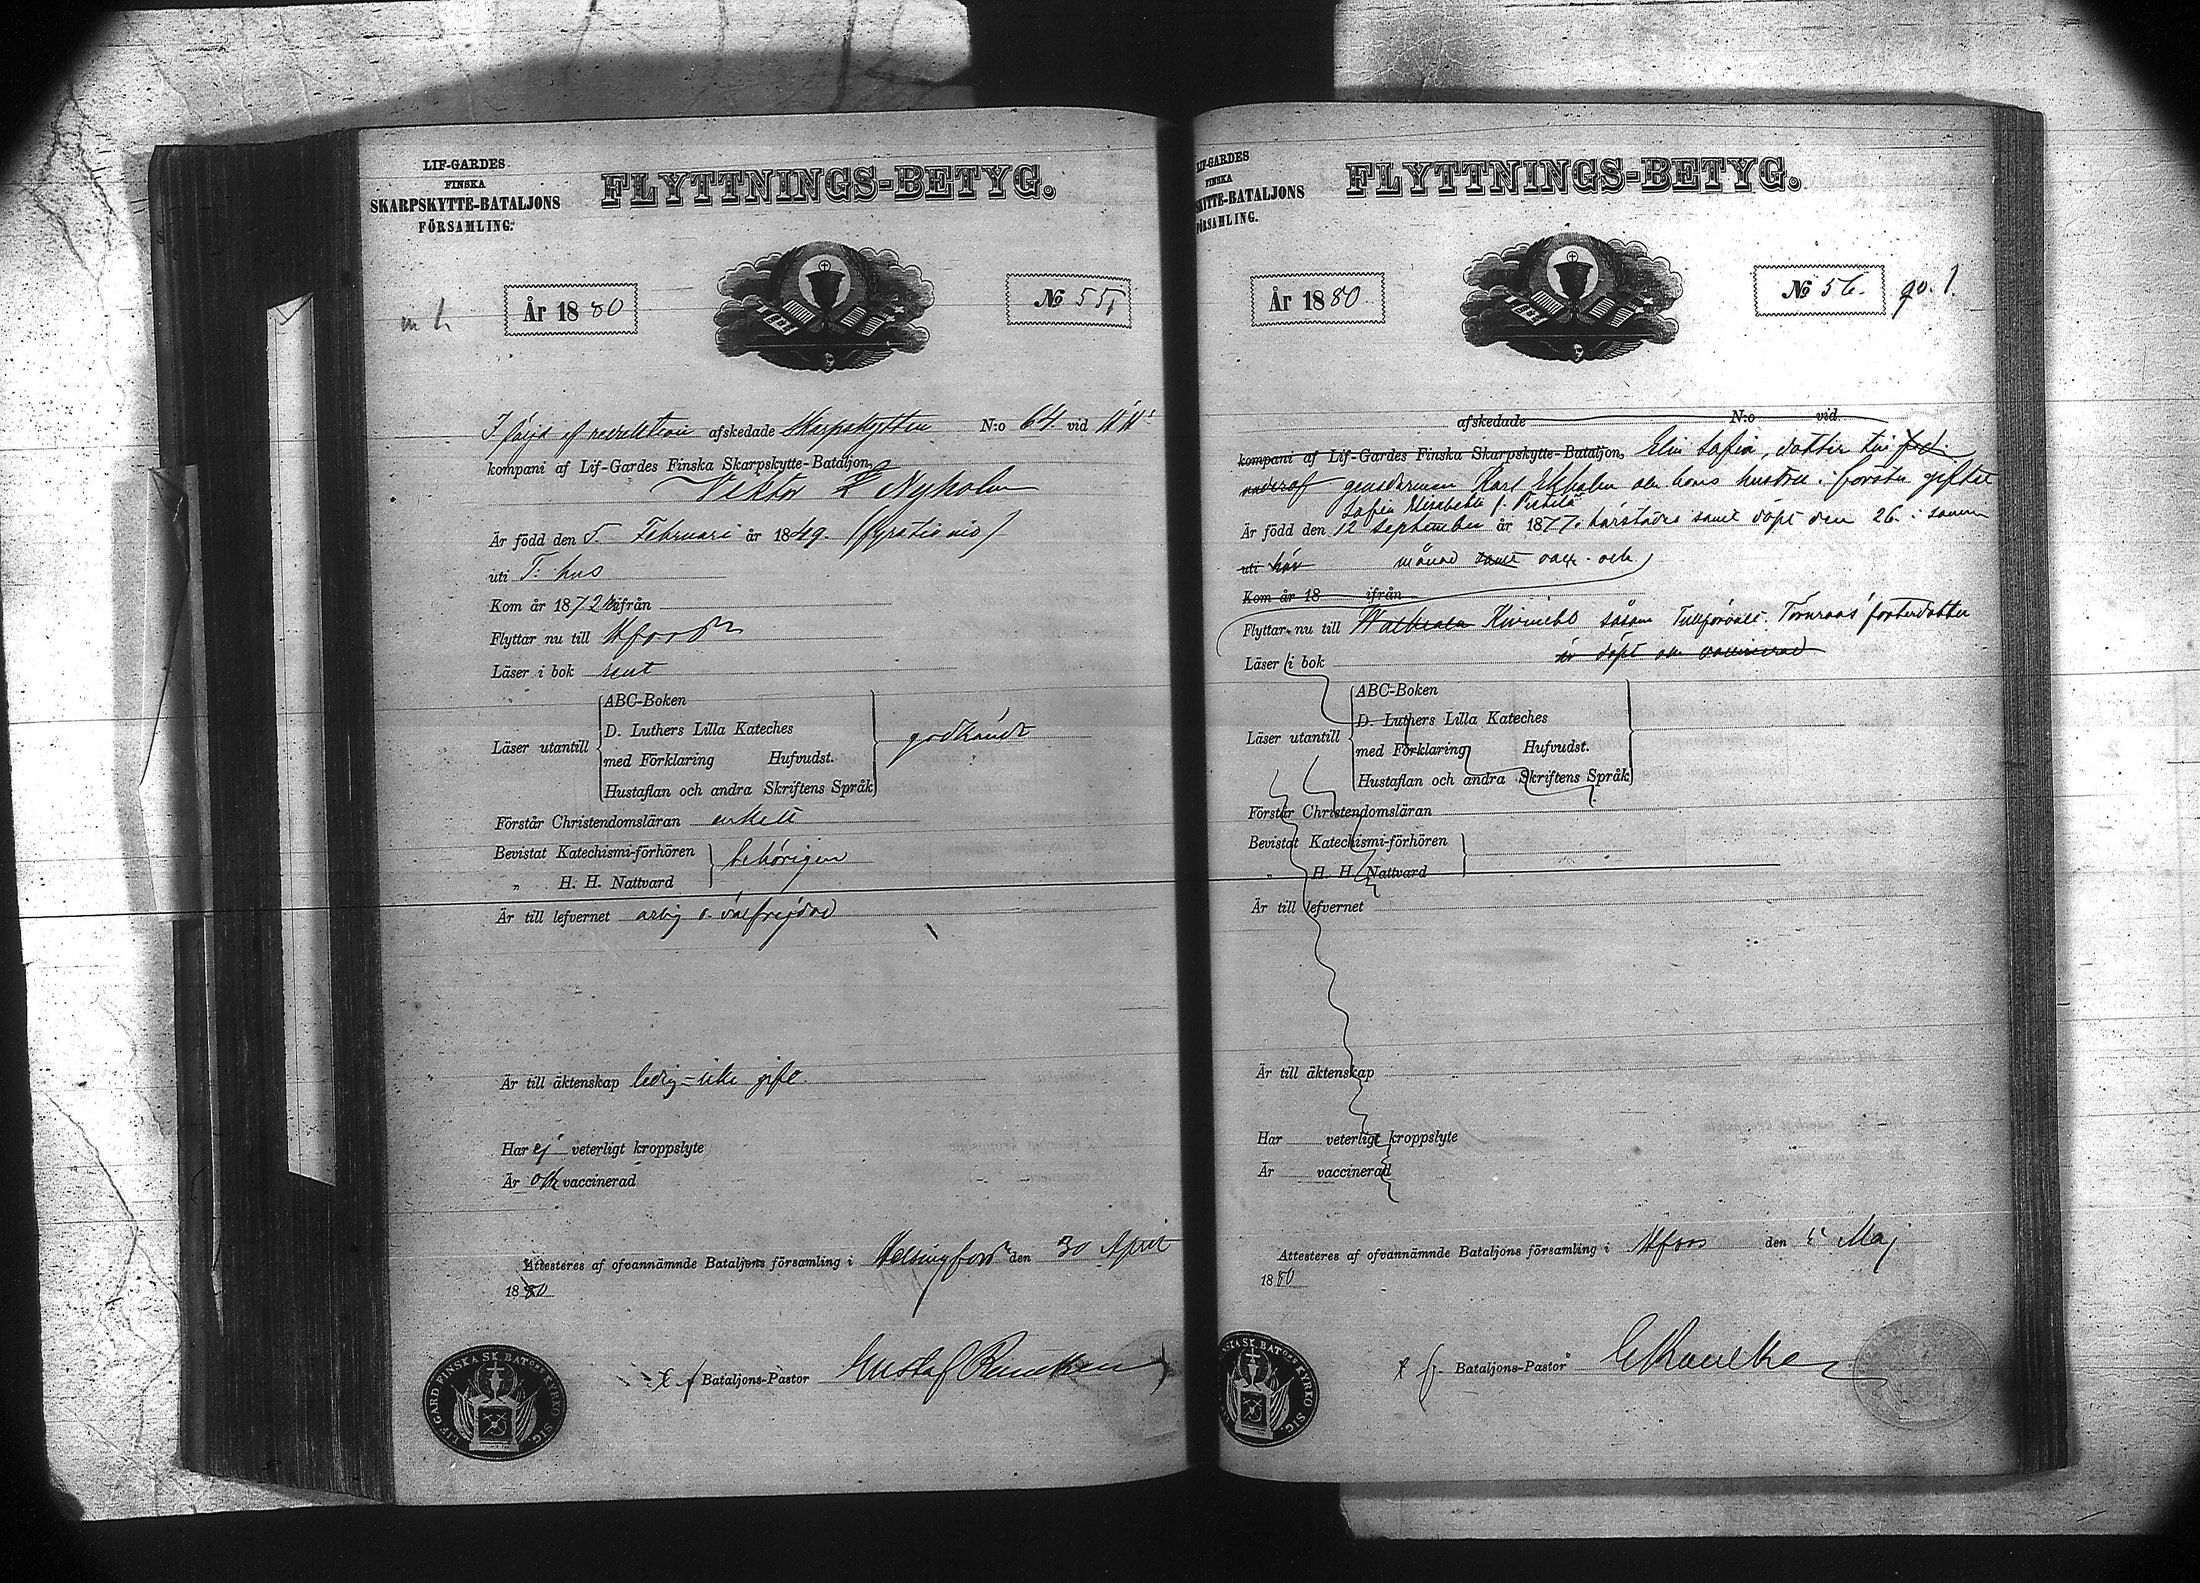 LIF-GARDES
FINSKA
SKARPSKYTTE-BATALJONS
FÖRSAMLING.
FLYTTNINGS-BETYG.
År 1880
№ 55,
I följd af reduktion afskedade Skarpskytten N:o 64 vid
kompani af Lif-Gardes Finska Skarpskytte-Bataljon,
Viktor Nyholm
Är född den 5. Februari år 1849. (fyratio nio)
uti T: hus
Kom år 1872 ifrån
Flyttar nu till Hfors
Läser i bok rent
ABC-Boken
D. Luthers Lilla Kateches
Läser utantill
med Förklaring Hufvudst.
godkändt
Hustaflan och andra Skriftens Språk
Förstår Christendomsläran enkelt
Bevistat Katechismi-förhören
behörigen
„ H. H. Nattvard
Är till lefvernet ärlig o. välfrejdad
Är till äktenskap ledig = icke gift.
Har ej veterligt kroppslyte
Är och vaccinerad
Attesteras af ofvannämnde Bataljons församling i Helsingfors den 30 April
1880
Bataljons-Pastor Gustaf
LIF. GARD FINSKA SK. BATons KYRKO SIG.
LIF-GARDES
FINSKA
SKYTTE-BATALJONS
FÖRSAMLING.
FLYTTNINGS-BETYG.
År 1880.
№ 56.
afskedade N:o vid
kompani af Lif-Gardes Finska Skarpskytte-Bataljon, Elin Sofia, dotter till
gensdarmen Karl Ekholm och hans hustru i första giftet
Sofia Elisabeth f.
Är född den 12 September år 1877. härstädes samt döpt den 26. i samma
uti här månad samt vacc. och
Kom år 18 ifrån
Flyttar nu till Kivinebb såsom Tullförvalt. Törnroos' fosterdotter
är döpt och vaccinerad
Läser i bok
ABC-Boken
D. Luthers Lilla Kateches
Läser utantill
med Förklaring Hufvudst.
Hustaflan och andra Skriftens Språk
Förstår Christendomsläran
Bevistat Katechismi-förhören
„ H. H. Nattvard
Är till lefvernet
Är till äktenskap
Har veterligt kroppslyte
Är vaccinerad
Attesteres af ofvannämnde Bataljons församling i Hfors den 5 Maj
1880
Bataljons-Pastor
SK. BATons KYRKO SIG.